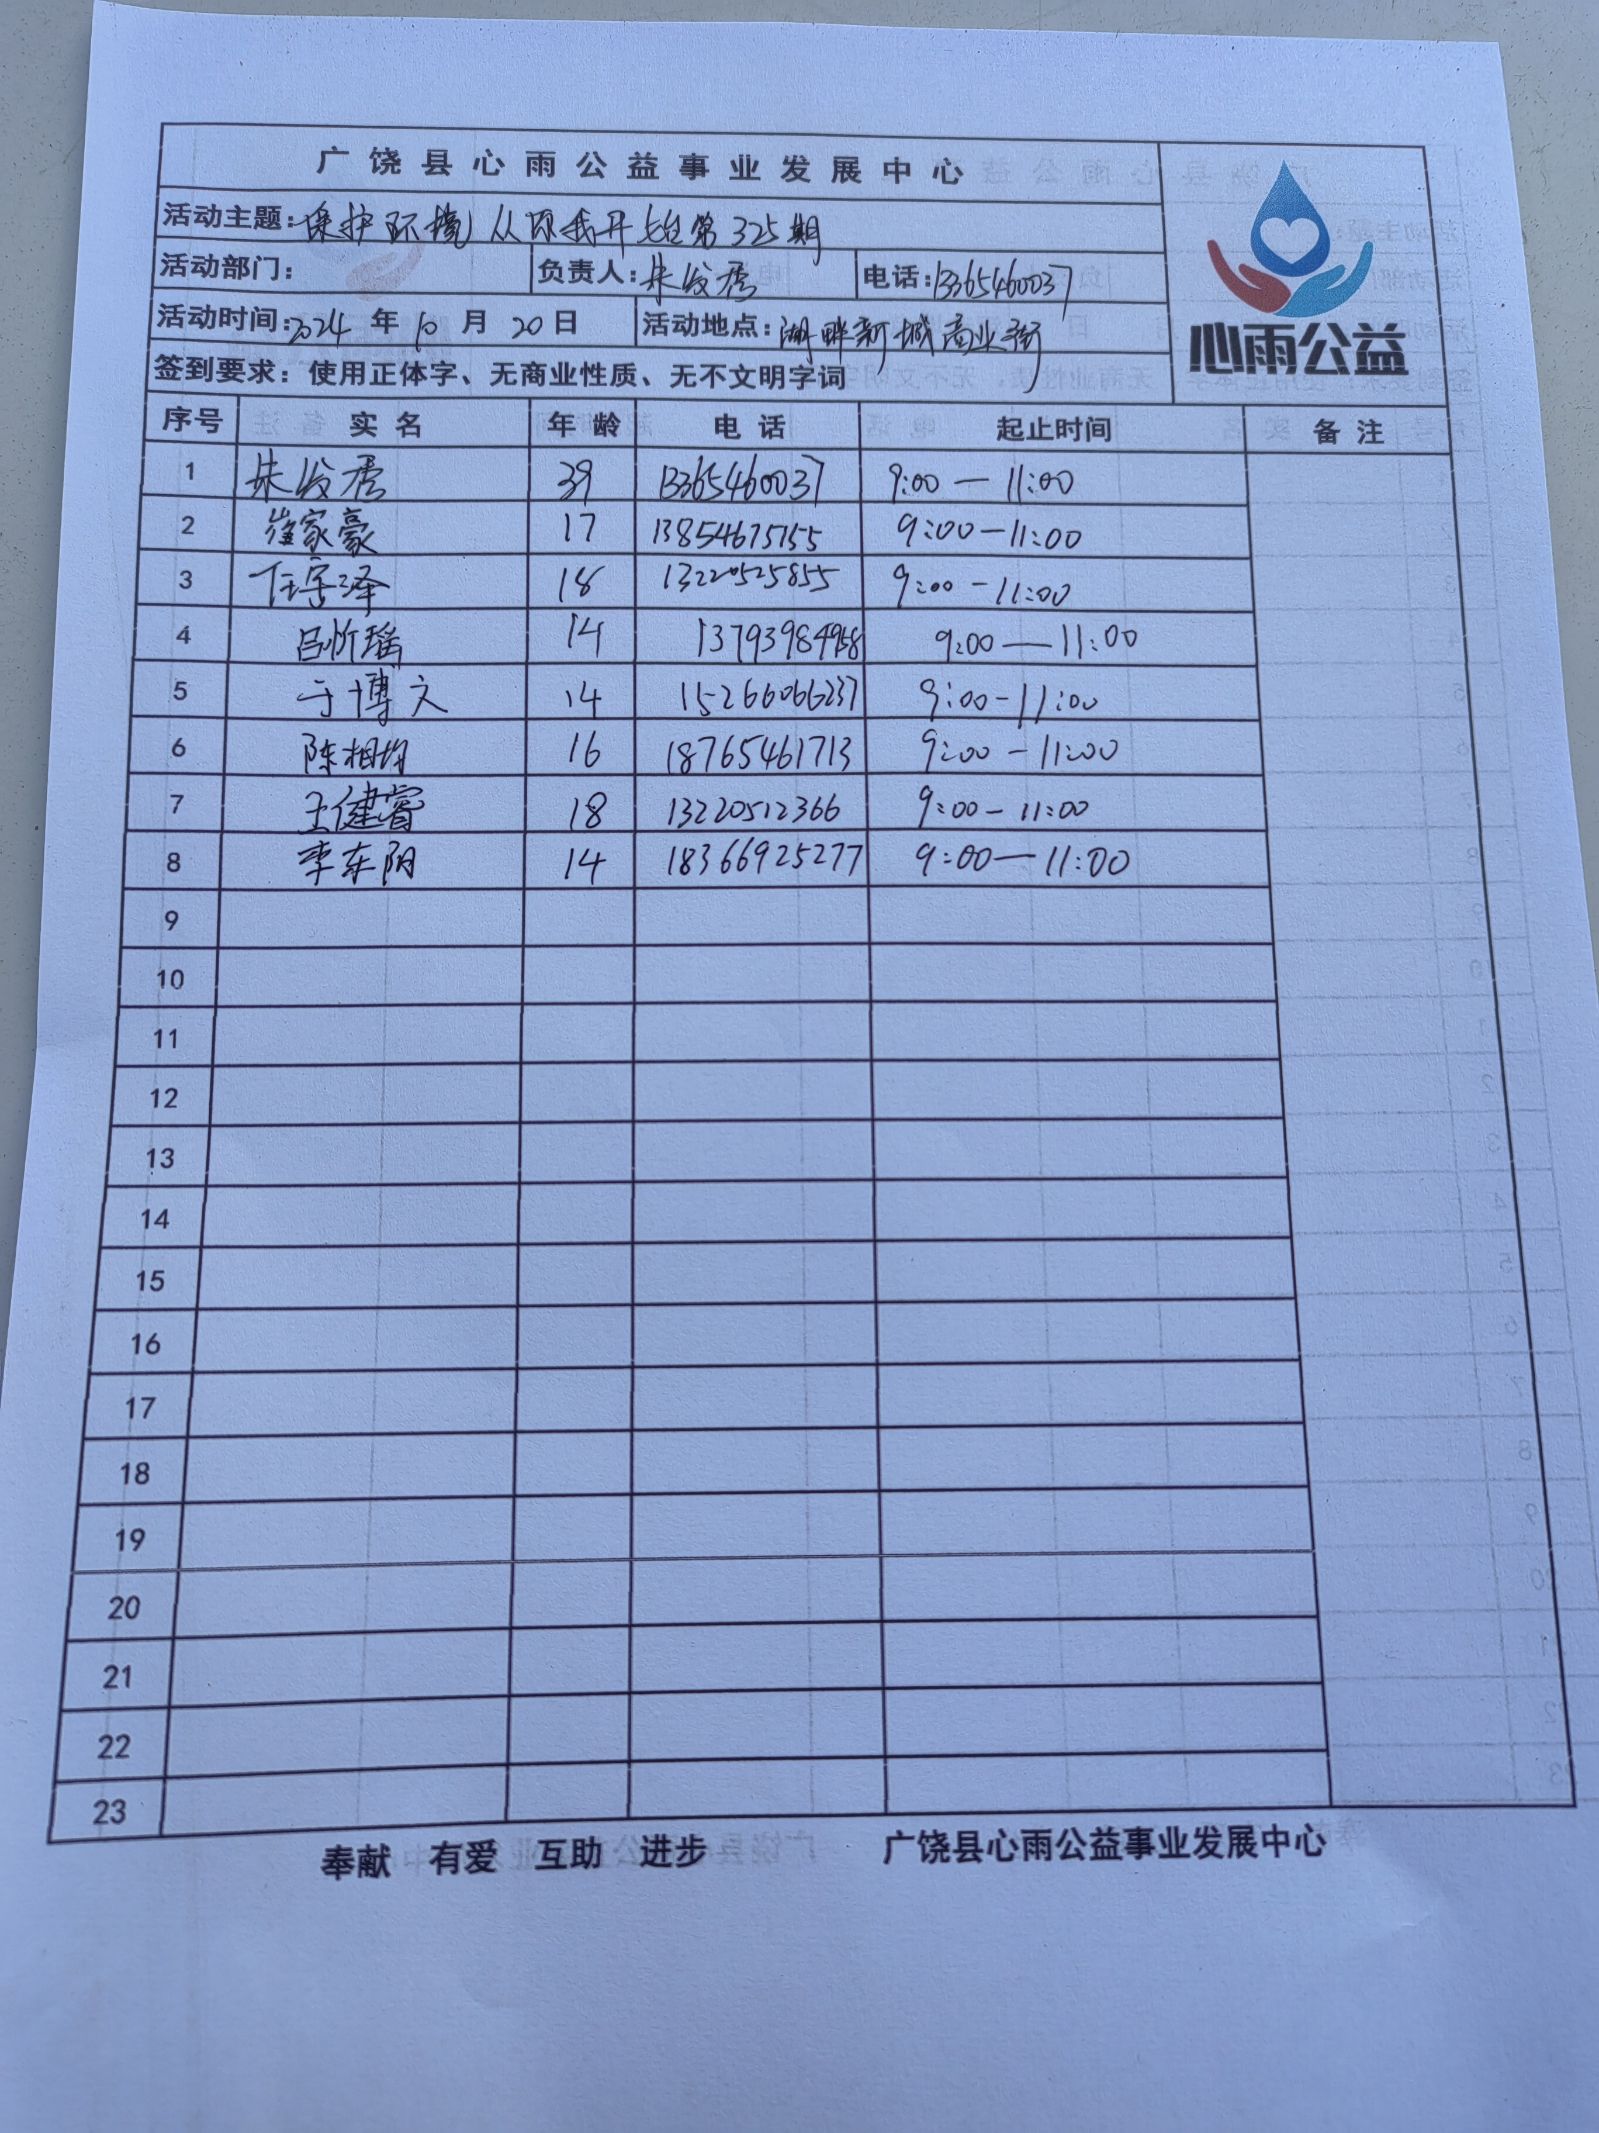 广饶县心雨公益事业发展中心
活动主题：保护环境从你我开始第325期
活动部门： 负责人：朱发秀 电话：13365460037
活动时间：2024年10月20日 活动地点：湖畔新城商业街
签到要求：使用正体字、无商业性质、无不文明字词
心雨公益
序号 实名 年龄 电话 起止时间 备注
1 朱发秀 39 13365460037 9:00—11:00
2 崔家豪 17 13854675755 9:00-11:00
3 任宇泽 18 13220525855 9:00-11:00
4 吕忻瑶 14 13793984958 9:00—11:00
5 于博文 14 15266066237 9:00-11:00
6 陈相均 16 18765461713 9:00-11:00
7 王健睿 18 13220512366 9:00-11:00
8 李东阳 14 18366925277 9:00—11:00
9
10
11
12
13
14
15
16
17
18
19
20
21
22
23
奉献 有爱 互助 进步 广饶县心雨公益事业发展中心